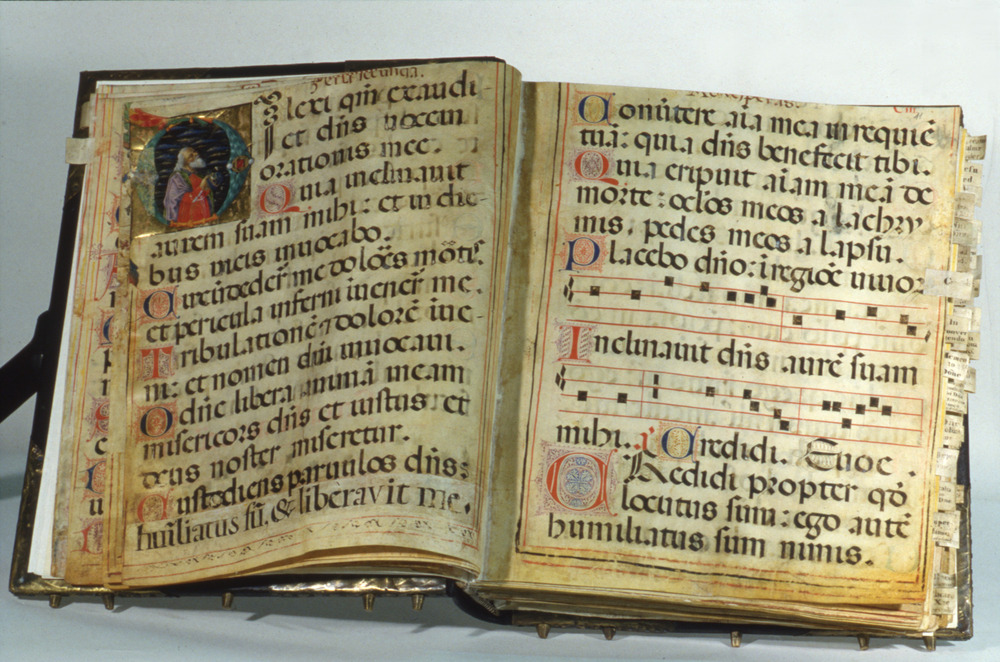 Feria secunda.
Ilexi qm̄ exaudi-
et dn̄s vocem
orationis mee.
Quia inclinavit
aurem suam mihi: et in die-
bus meis invocabo.
me dolo᷒es mo᷒t᷒
et pericula inferni me.
Tribulationē dolorē inve-
ni: et nomen dn̄i invocavi.
O dn̄e libera animā meam
misericors dn̄s et iustus: et
deus noster miseretur.
Custodiens parvulos dn̄s:
hūiliatus sū, & liberavit me.
Convertere aīa mea in requiē
tuā: quia dn̄s benefecit tibi.
Quia eripuit aīam meā de
morte: oc̄los meos a lachry
mis, pedes meos a lapsu.
Placebo dn̄o:
Inclinavit dn̄s aurē suam
mihi. Credidi. Euoe.
Credidi propter qō
locutus sum: ego autē
humiliatus sum nimis.